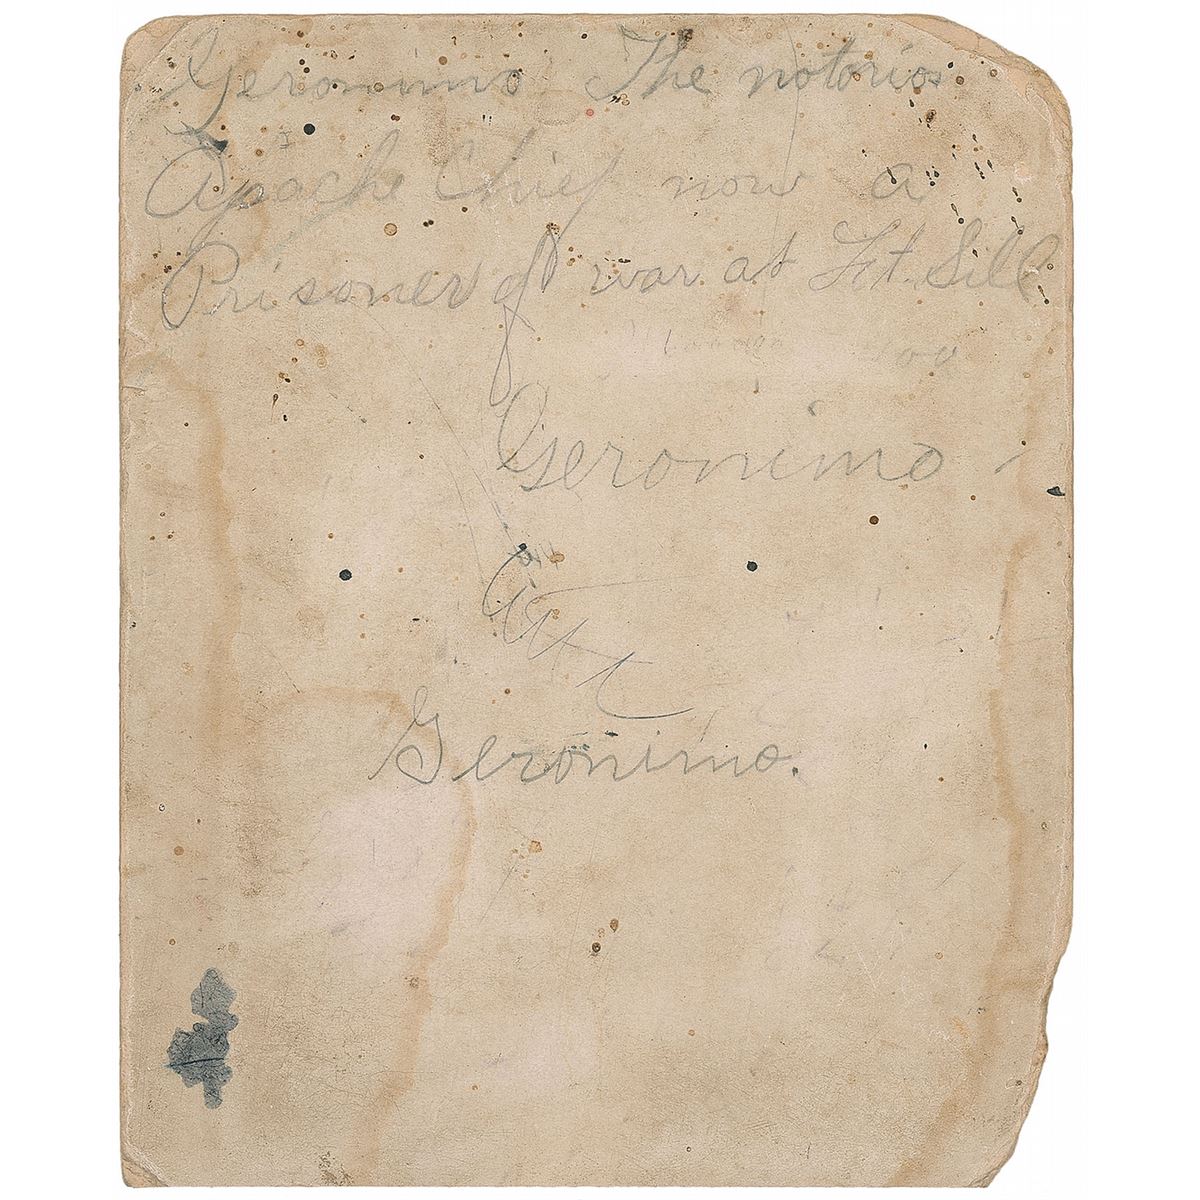 Geronimo The notorios
Apache Chief now a
Prisoner of war at Ft. Sill
Geronimo
Geronimo.